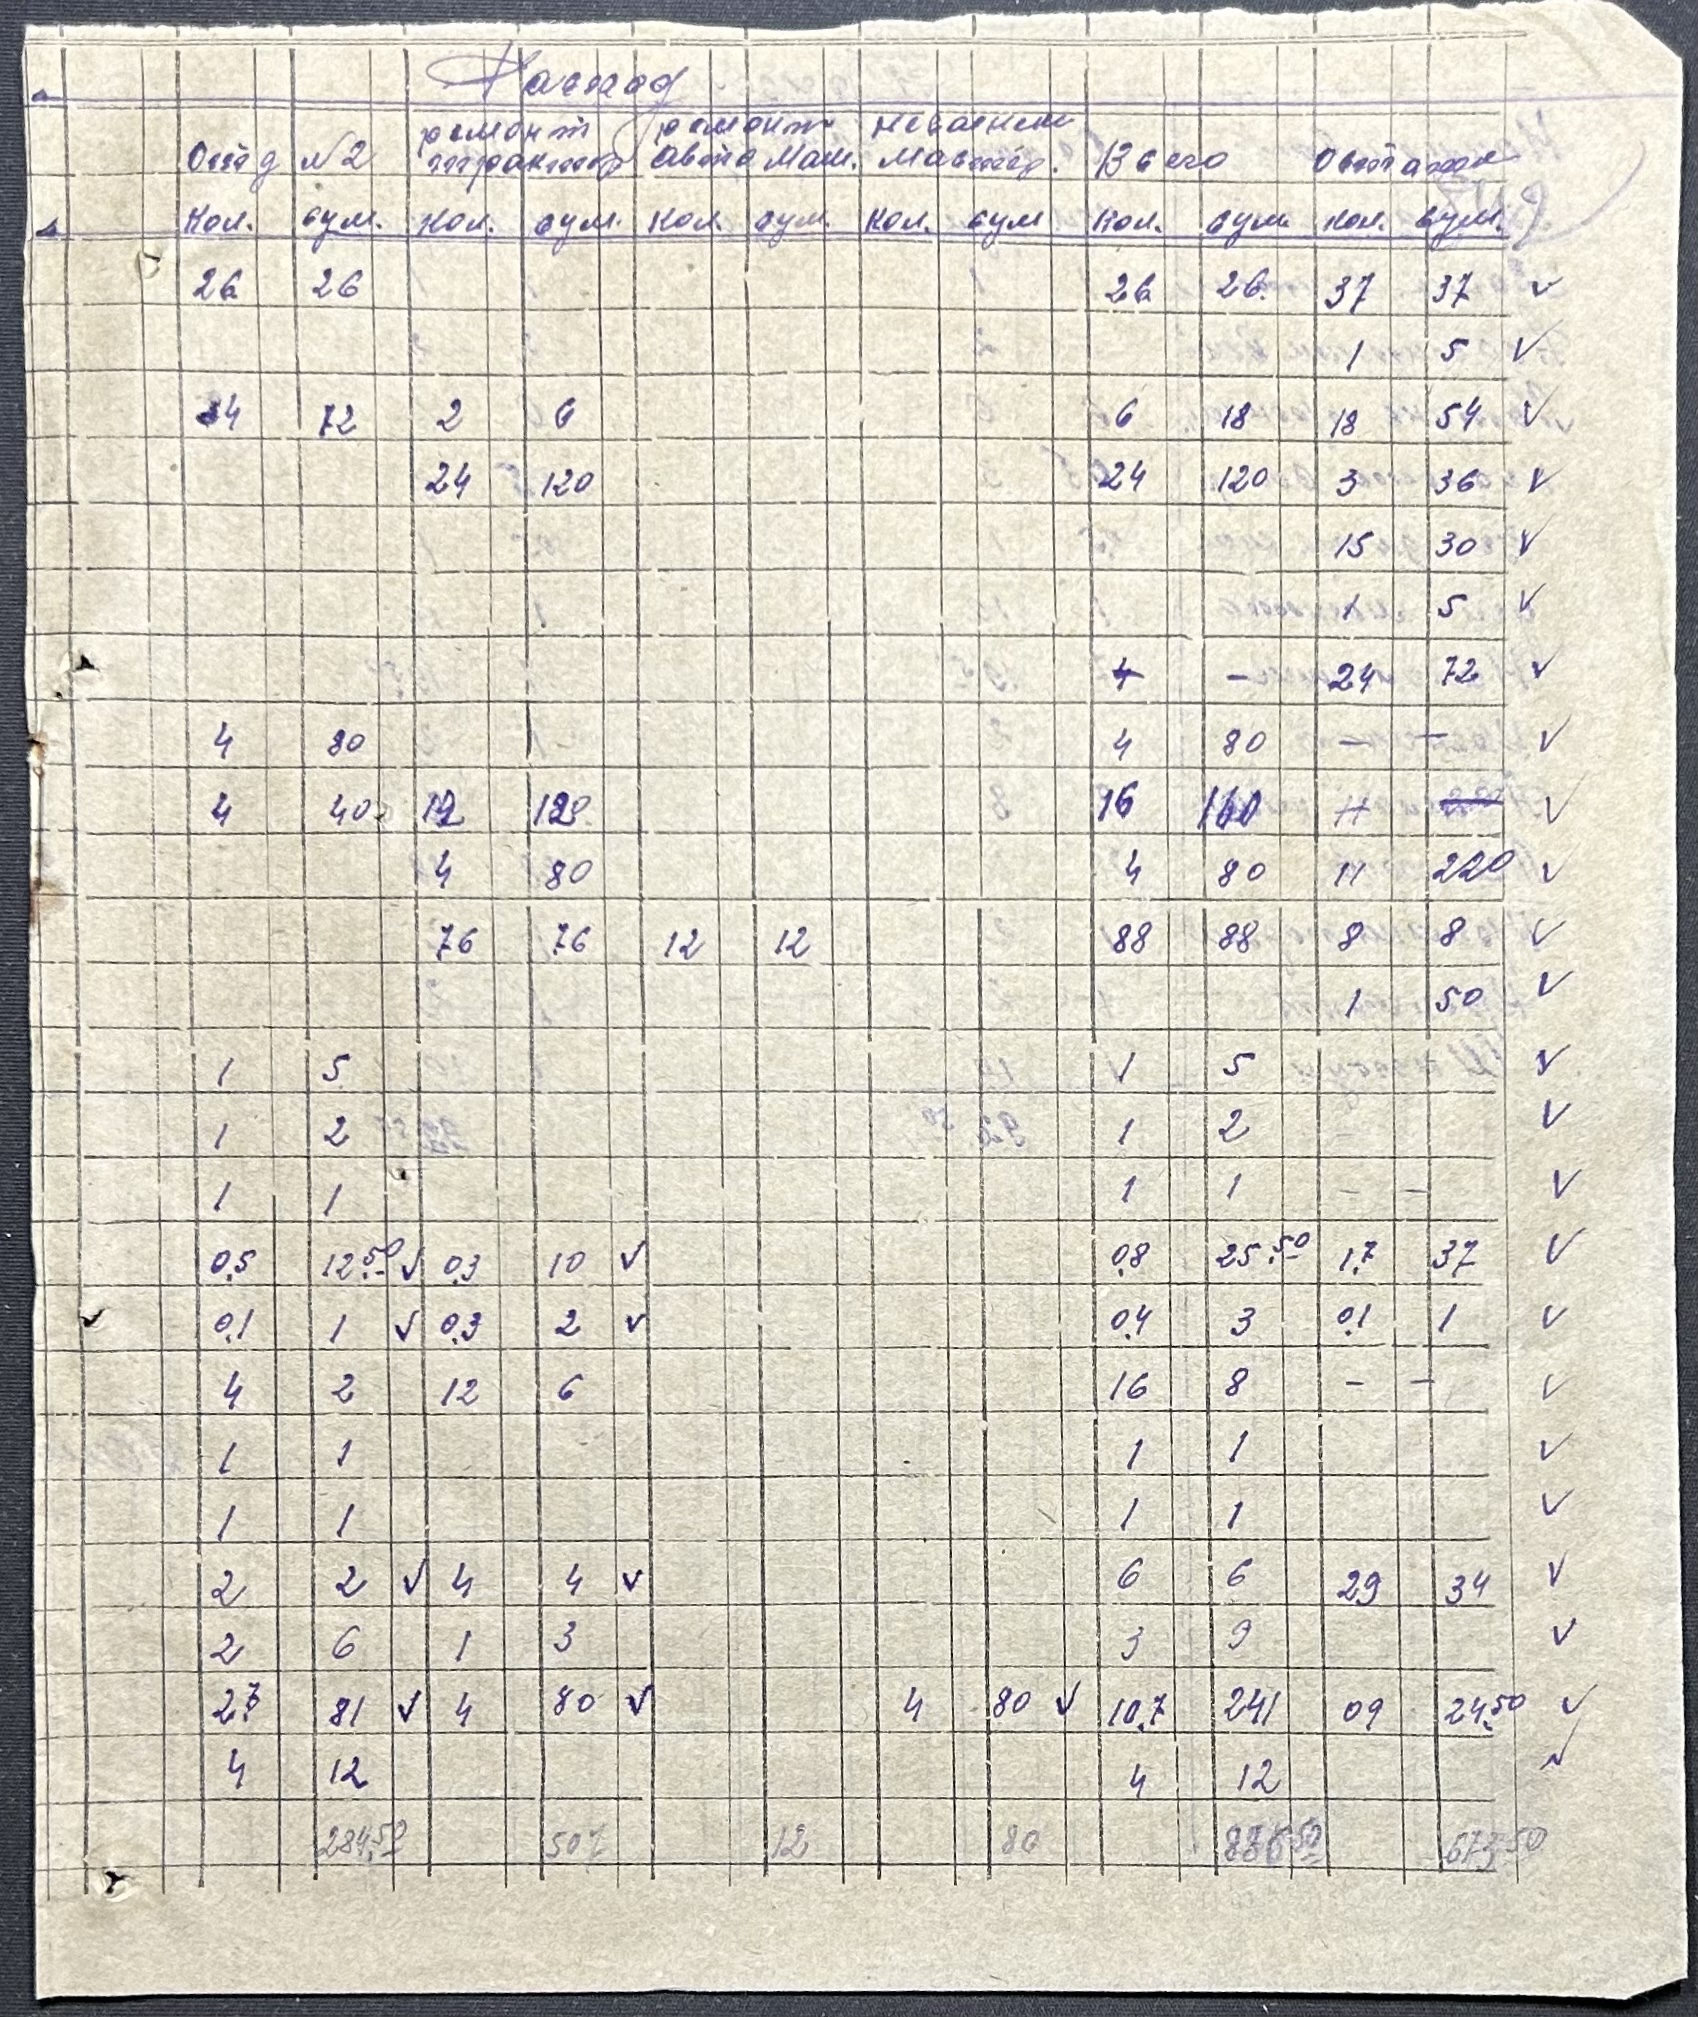 Расход
Отд №2 ремонт трактор ремонт авто маш. мастер. Всего Остаток
Кол. сум. Кол. сум. Кол. сум. Кол. сум Кол. сум. кол. сум.
26 26 26 26. 37 37 √
1 5 √
4 72 2 6 6 18 18 54 √
24 120 24 120 3 36 √
15 30 √
1 5 √
4 – 24 72 √
4 80 4 80 – – √
4 40 12 120 16 160 11 √
4 80 4 80 11 220 √
76 76 12 12 88 88 8 8 √
1 50 √
1 5 1 5 √
1 2 1 2 √
1 1 1 1 – – √
0,5 12.50 √ 0,3 10 √ 0,8 25.50 1,7 37 √
0,1 1 √ 0,3 2 √ 0,4 3 0,1 1 √
4 2 12 6 16 8 – – √
1 1 1 1 √
1 1 1 1 √
2 2 √ 4 4 √ 6 6 29 34 √
2 6 1 3 3 9 √
2,7 81 √ 4 80 √ 4 80 √ 10,7 241 09 24.50 √
4 12 4 12 √
284,50 507 12 80 50 673 50